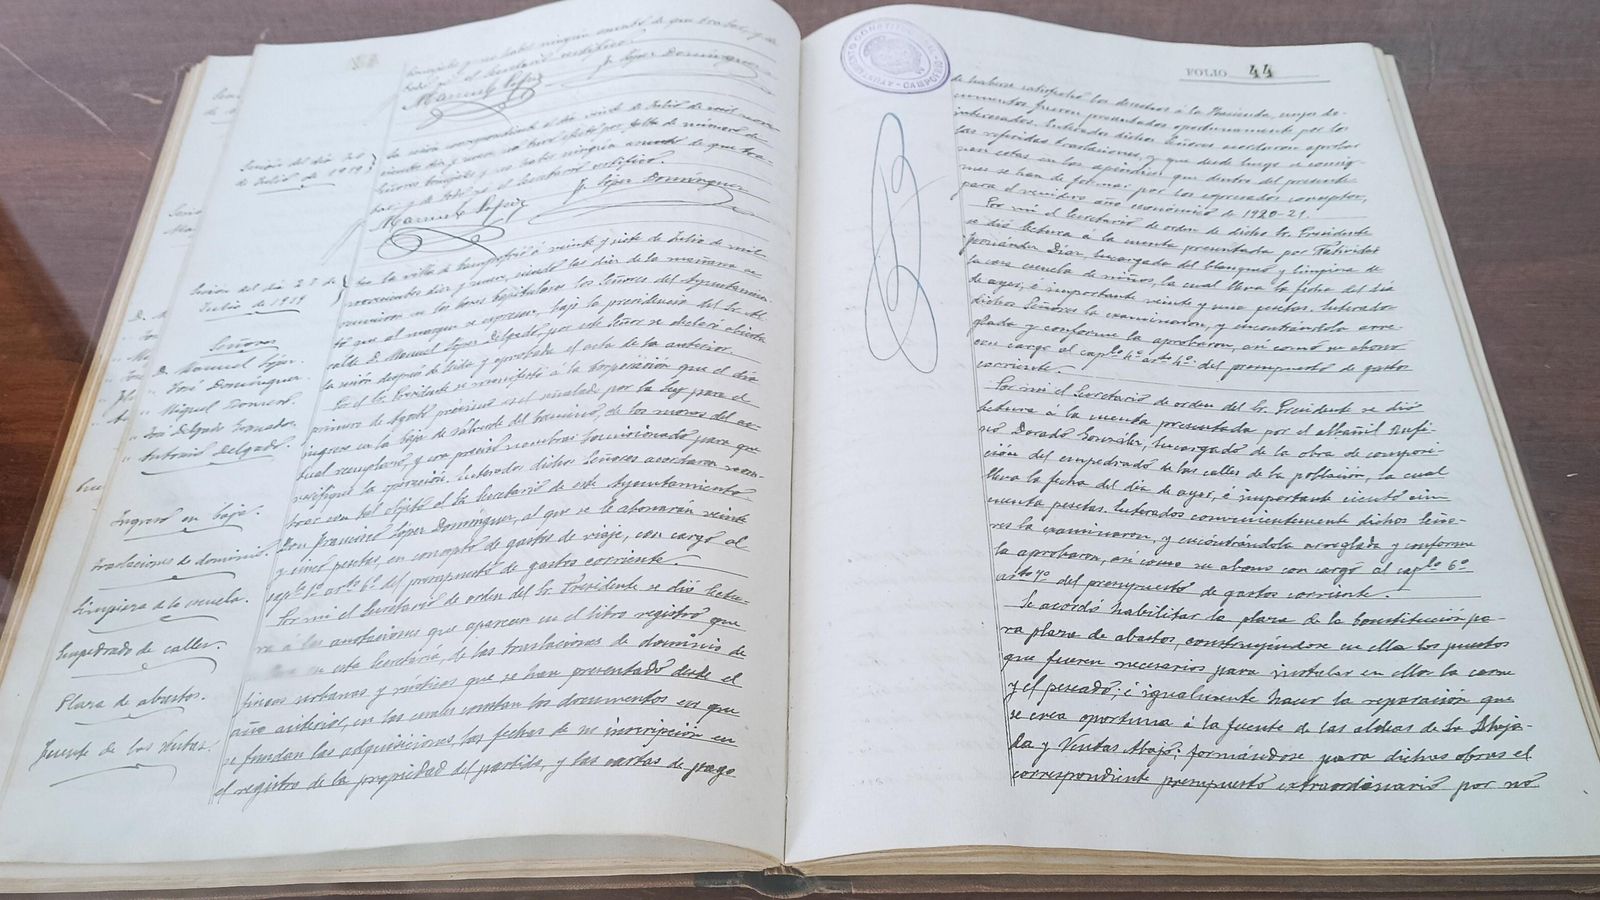 concejales y no haber ningún asunto de que tratar, y de
todo yo el Secretario certifico.
Manuel López
Fr. López Domínguez
Sesión del día 20
de Julio de 1919
La sesión correspondiente al día veinte de Julio de mil nove-
cientos diez y nueve, no tuvo efecto por falta de número de
Señores concejales y no haber ningún asunto de que tra-
tar, y de todo yo el Secretario certifico.
Manuel López
Fr. López Domínguez
Sesión del día 27 de
Julio de 1919
Señores
D. Manuel López.
" José Domínguez.
" Miguel
" José Delgado Granados.
" Antonio Delgado.
Ingreso en baja.
Traslaciones de dominio.
Limpieza a la escuela.
Empedrado de calles.
Plaza de abastos.
Fuente de las Ventas.
En la villa de Campofrío á veinte y siete de Julio de mil
novecientos diez y nueve, siendo las diez de la mañana se
reunieron en las Casas Capitulares los Señores del Ayuntamien-
tó que al margen se expresan, bajo la presidencia del Sr. Al-
calde D. Manuel López Delgado, por este Señor se declaró abierta
la sesión después de leída y aprobada el acta de la anterior.
Por el Sr. Presidente se manifestó á la Corporación que el día
primero de Agosto próximo es el señalado por la Ley para el
ingreso en la Caja de Valverde del Camino, de los mozos del ac-
tual reemplazo, y era preciso nombrar comisionado para que
verifique la operación. Enterados dichos Señores acordaron nom-
brar con tal objeto al Secretario de este Ayuntamiento
Don Francisco López Domínguez, al que se le abonarán veinte
y cinco pesetas, en concepto de gastos de viaje, con cargo al
capº 1º artº 6º del presupuestó de gastos corriente.
Por mi el Secretario de orden del Sr. Presidente se dió lectu-
ra á las anotaciones que aparecen en el libro registro que
en esta Secretaría, de las traslaciones de dominio de
fincas urbanas y rústicas que se han presentado desde el
año anterior, en las cuales constan los documentos en que
se fundan las adquisiciones, las fechas de su inscripción en
el registro de la propiedad del partido, y las cartas de pago
AYUNTAMIENTO CONSTITUCIONAL - CAMPOFRIO
FOLIO 44
de haberse satisfecho los derechos á la Hacienda, cuyos do-
cumentos fueron presentados oportunamente por los
interesados. Enterados dichos Señores acordaron aprobar
las referidas traslaciones, y que desde luego se consig-
nen estas en los apéndices que dentro del presente
mes se han de formar por los expresados conceptos,
para el venidero año económico de 1920-21.
Por mi el Secretario de orden de dicho Sr. Presidente
se dió lectura á la cuenta presentada por Natividad
Fernández Díaz, encargada del blanqueo y limpieza de
la casa escuela de niños, la cual lleva la fecha del día
de ayer, é importante veinte y una pesetas. Enterados
dichos Señores la examinaron, y encontrándola arre-
glada y conforme la aprobaron, así como su abono
con cargo al capº 4º artº 4º del presupuesto de gastos
corriente.
Por mi el Secretario de orden del Sr. Presidente se dió
lectura á la cuenta presentada por el albañil Rufi-
no Dorado González, encargado de la obra de composi-
ción del empedrado de las calles de la población, la cual
lleva la fecha del día de ayer, é importante ciento cin-
cuenta pesetas. Enterados convenientemente dichos Seño-
res la examinaron, y encontrándola arreglada y conforme
la aprobaron, así como su abono con cargó al capº 6º
artº 7º del presupuestó de gastos corriente.
Se acordó habilitar la plaza de la Constitución pa-
ra plaza de abastos, construyéndose en ella los puestos
que fueren necesarios para instalar en ellos la carne
y el pescado; é igualmente hacer la reparación que
se crea oportuna á la fuente de las aldeas de la Ahoja-
da y Ventas Abajo; formándose para dichas obras el
correspondiente presupuesto extraordinario por no